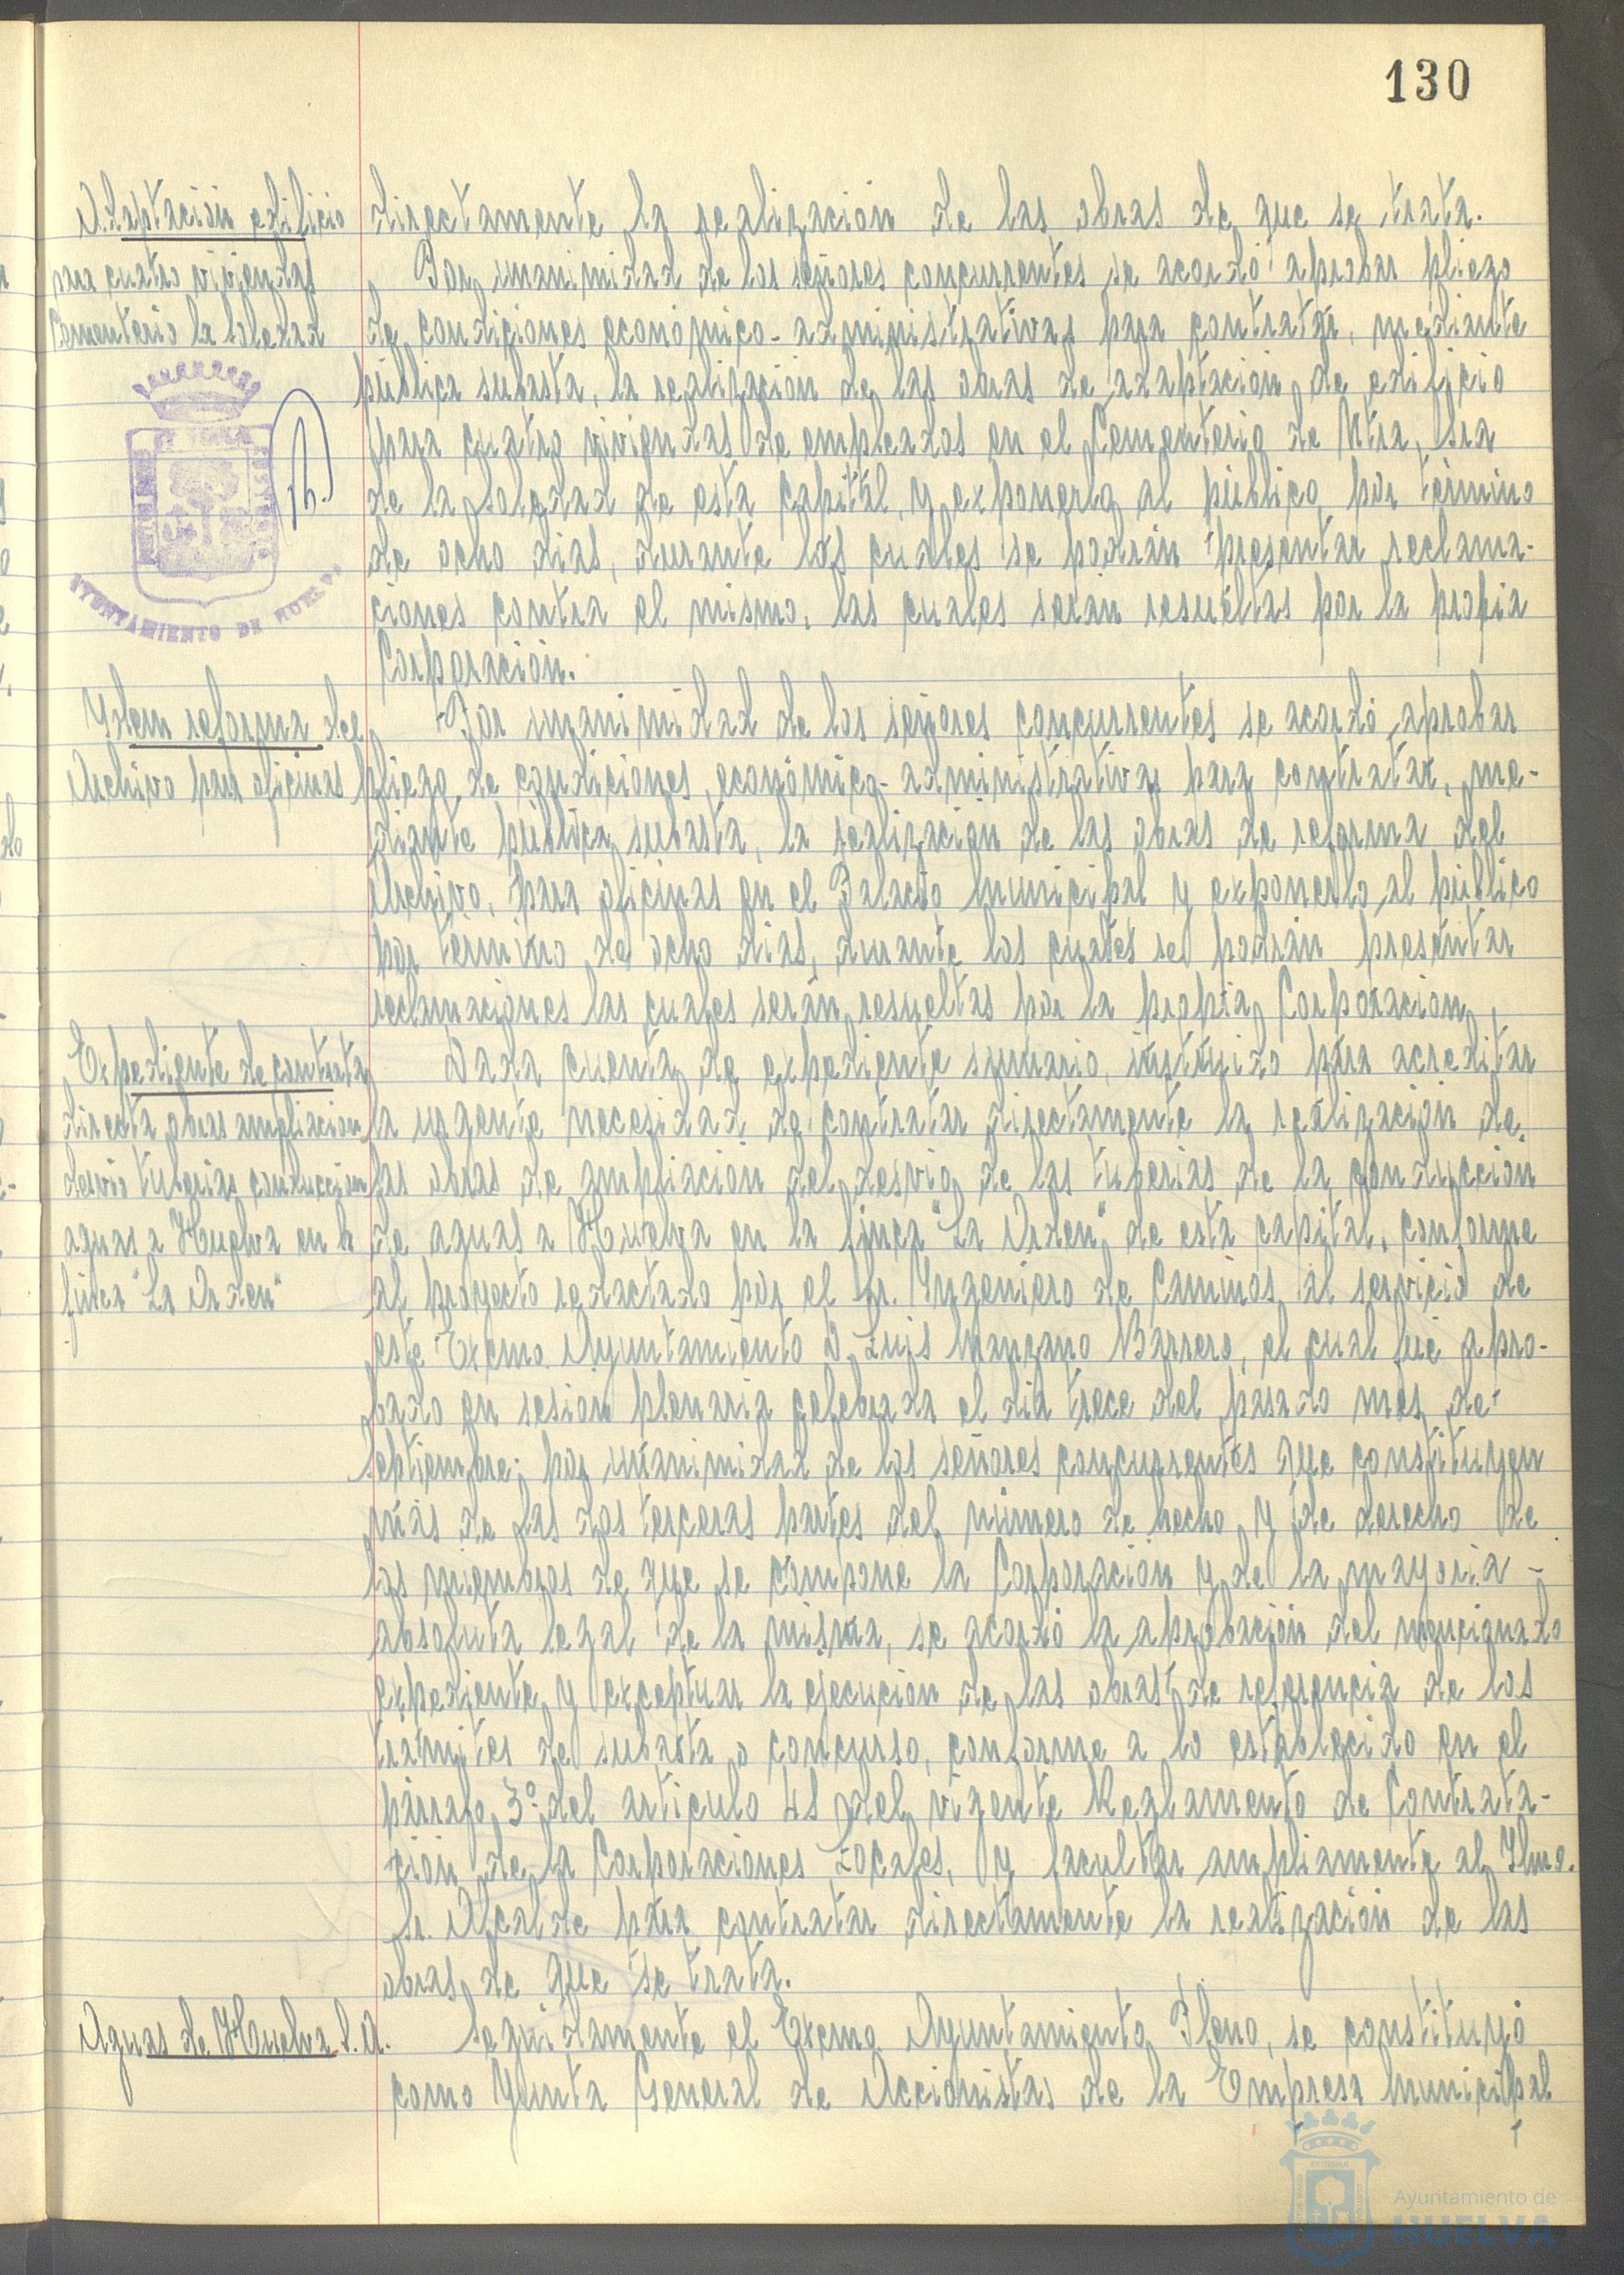 130
Adaptación edificio
para cuatro viviendas
Cementerio la Soledad
AYUNTAMIENTO DE HUELVA
directamente la realización de las obras de que se trata.
Por unanimidad de los señores concurrentes se acordó aprobar pliego
de condiciones económico-administrativas para contratar, mediante
pública subasta, la realización de las obras de adaptación de edificio
para cuatro viviendas de empleados en el Cementerio de Ntra. Sra
de la Soledad de esta capital, y exponerlo al público por término
de ocho días, durante los cuales se podrán presentar reclama-
ciones contra el mismo, las cuales serán resueltas por la propia
Corporación.
Ydem reforma del
Archivo para oficinas
Por unanimidad de los señores concurrentes se acordó aprobar
pliego de condiciones económico-administrativas para contratar, me-
diante pública subasta, la realización de las obras de reforma del
Archivo, para oficinas en el Palacio Municipal y exponerlo al público
por término de ocho días, durante los cuales se podrán presentar
reclamaciones las cuales serán resueltas por la propia Corporación.
Expediente de contrata
directa obras ampliacion
desvio tuberias conduccion
aguas a Huelva en la
finca "La Orden"
Dada cuenta de expediente sumario, instruido para acreditar
la urgente necesidad de contratar directamente la realización de
las obras de ampliación del desvio de las tuberias de la conducción
de aguas a Huelva en la finca "La Orden" de esta capital, conforme
al proyecto redactado por el Sr. Yngeniero de Caminos al servicio de
este Excmo. Ayuntamiento D. Luis Manzano Barrero, el cual fué apro-
bado en sesión plenaria celebrada el dia trece del pasado mes de
Septiembre; por unanimidad de los señores concurrentes que constituyen
más de las dos terceras partes del número de hecho y de derecho de
los miembros de que se compone la Corporación y de la mayoria -
absoluta legal de la misma, se acordó la aprobación del mencionado
expediente y exceptuar la ejecución de las obras de referencia de los
trámites de subasta o concurso, conforme a lo establecido en el
párrafo 3º del articulo 41 del vigente Reglamento de Contrata-
ción de la Corporaciones Locales, y facultar ampliamente al Ylmo.
Sr. Alcalde para contratar directamente la realización de las
obras de que se trata.
Aguas de Huelva S.A.
Seguidamente el Excmo. Ayuntamiento Pleno, se constituyó
como Yunta General de Accionistas de la Empresa Municipal
Ayuntamiento de
HUELVA